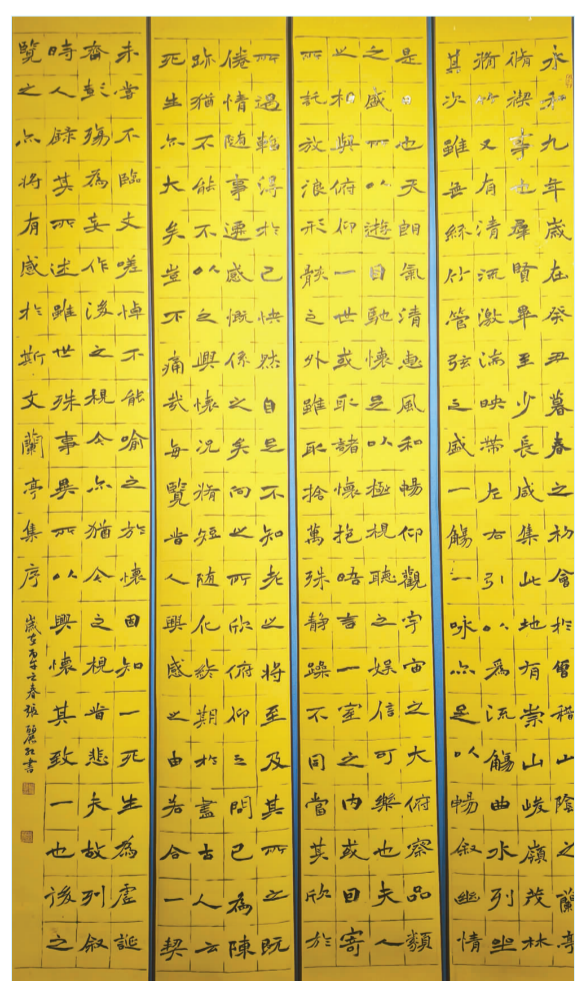 永和九年歲在癸丑暮春之初會於會稽山陰之蘭亭
脩禊事也羣賢畢至少長咸集此地有崇山峻嶺茂林
脩竹又有清流激湍映帶左右引以為流觴曲水列坐
其次雖無絲竹管弦之盛一觴一詠亦足以暢敘幽情
是日也天朗氣清惠風和暢仰觀宇宙之大俯察品類
之盛所以遊目馳懷足以極視聽之娛信可樂也夫人
之相與俯仰一世或取諸懷抱晤言一室之內或因寄
所託放浪形骸之外雖取捨萬殊靜躁不同當其欣於
所遇輒得於己快然自足不知老之將至及其所之既
倦情隨事遷感慨係之矣向之所欣俯仰之間已為陳
跡猶不能不以之興懷況脩短隨化終期於盡古人云
死生亦大矣豈不痛哉每覽昔人興感之由若合一契
未嘗不臨文嗟悼不能喻之於懷固知一死生為虛誕
齊彭殤為妄作後之視今亦猶今之視昔悲夫故列敘
時人錄其所述雖世殊事異所以興懷其致一也後之
覽之亦將有感於斯文蘭亭集序
歲在丙午之春張麗書